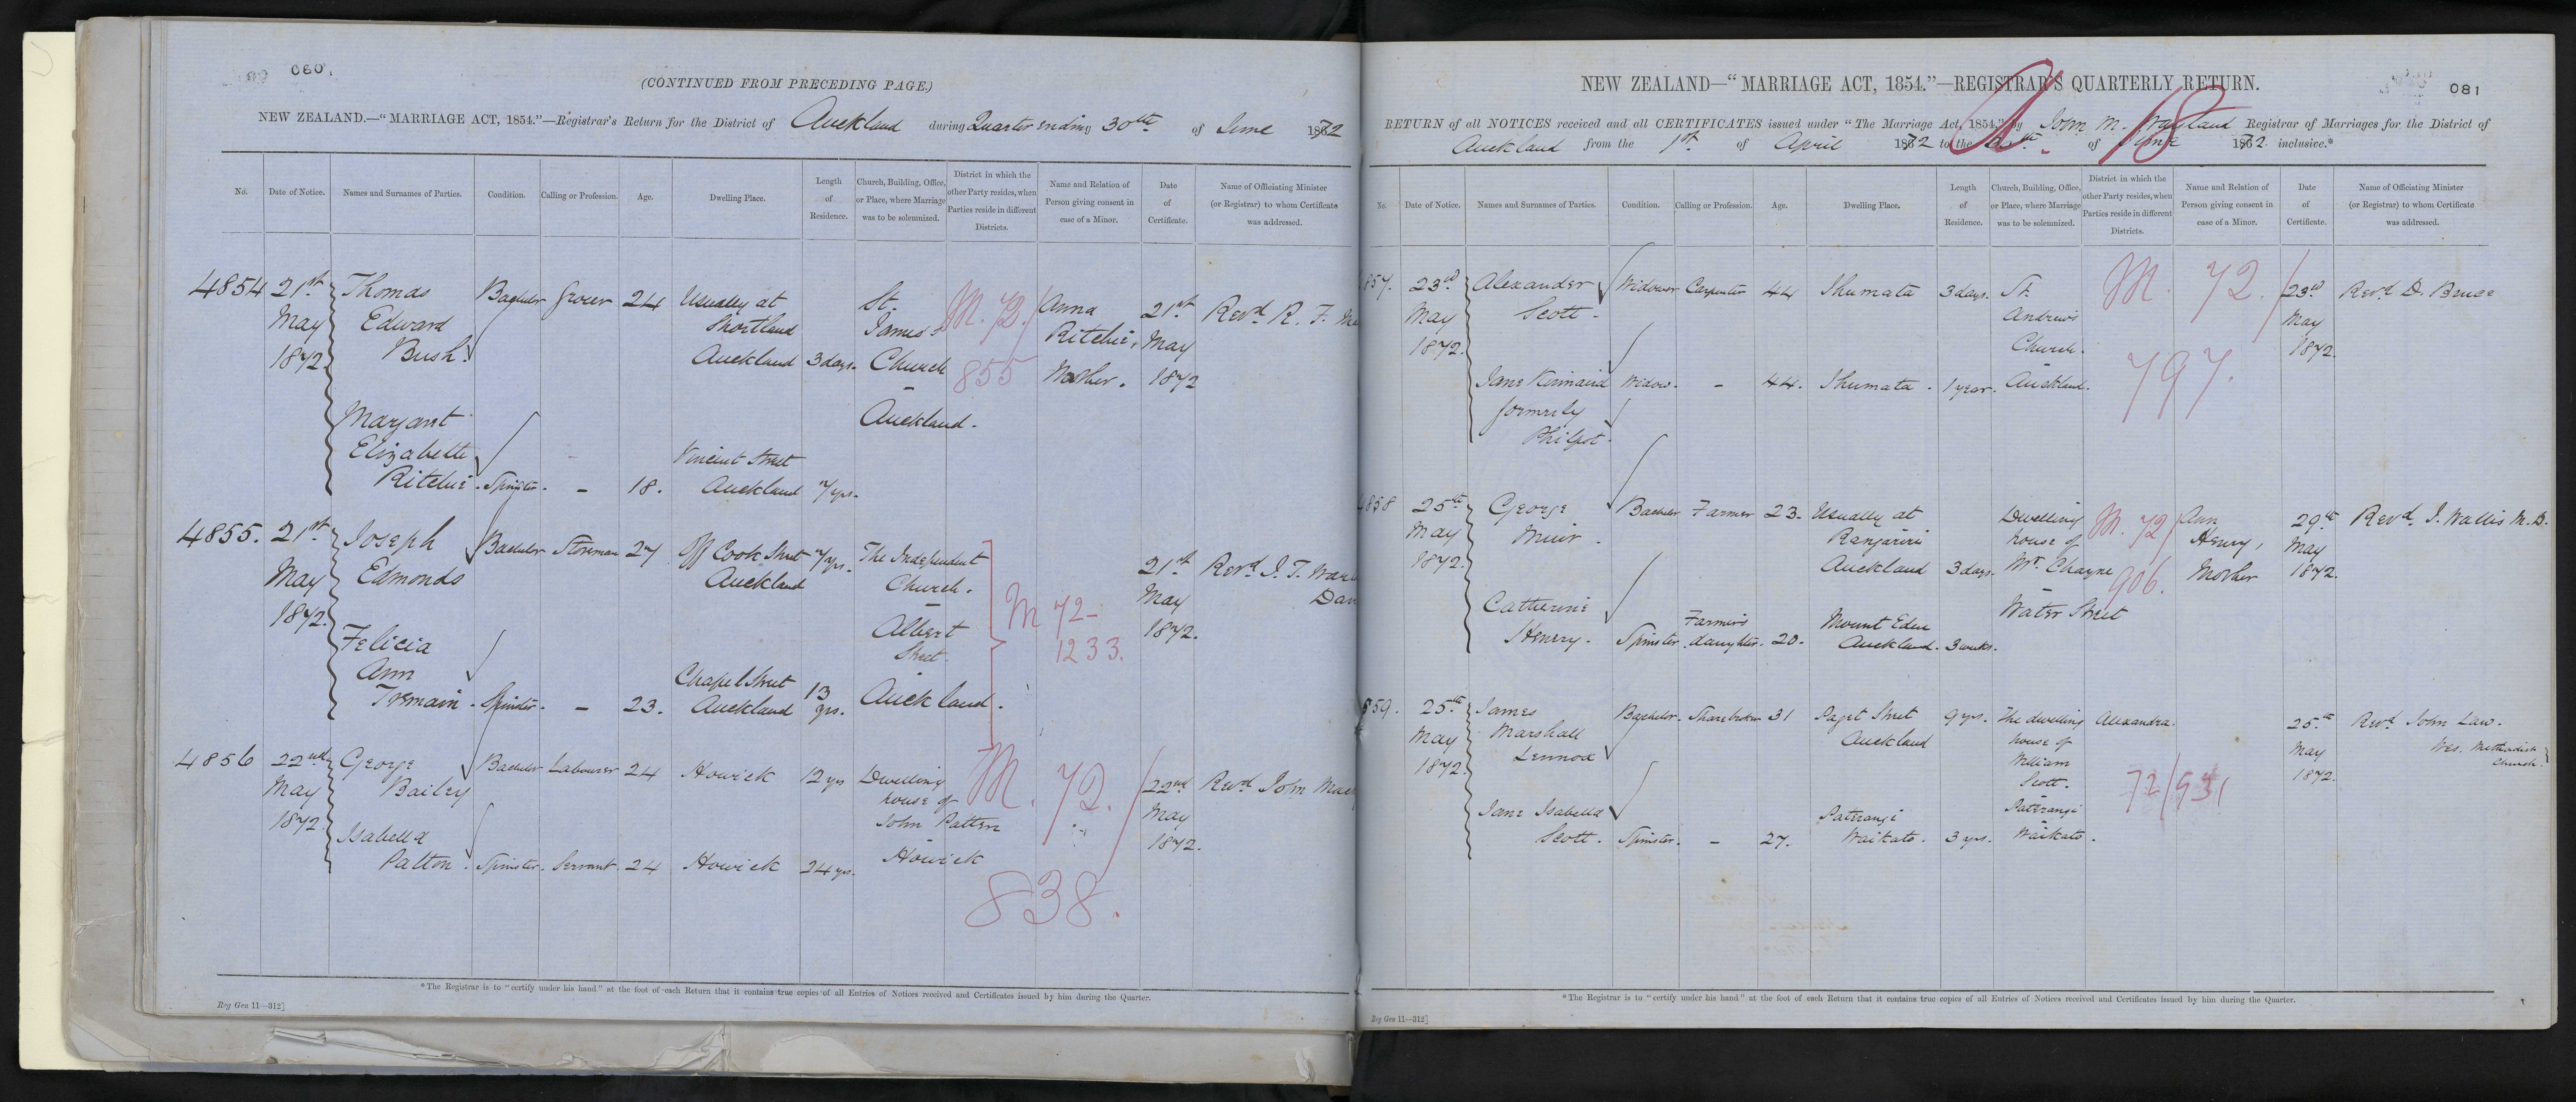 060
(CONTINUED FROM PRECEDING PAGE.)
NEW ZEALAND.—"MARRIAGE ACT, 1854."—Registrar's Return for the District of Auckland during Quarter ending 30th of June 1872
No. Date of Notice. Names and Surnames of Parties. Condition. Calling or Profession. Age. Dwelling Place. Length of Residence. Church, Building, Office, or Place, where Marriage was to be solemnized. District in which the other Party resides, when Parties reside in different Districts. Name and Relation of Person giving consent in case of a Minor. Date of Certificate. Name of Officiating Minister (or Registrar) to whom Certificate was addressed.
4854 21st May 1872 Thomas Edward Bush Bachelor Grocer 24 Usually at Shortland Auckland 3 days. St. James's Church - Auckland. M. 72/ 855 Anna Ritchie, Mother. 21st May 1872 Revd R. F.
Margaret Elizabeth Ritchie. Spinster. - 18. Vincent Street Auckland 7 yrs.
4855. 21st May 1872. Joseph Edmonds Bachelor Storeman 27 Off Cook Street Auckland 7 yrs. The Independent Church. - Albert Street. Auckland. M 72- 1233. 21st May 1872. Revd J. T.
Felicia Ann Tremain. Spinster. - 23. Chapel Street Auckland 13 yrs.
4856 22nd May 1872. George Bailey Bachelor Labourer 24 Howick 12 yrs Dwelling house of John Patten - Howick M. 72. / 838. 22nd May 1872. Revd John
Isabella Patton. Spinster. Servant. 24 Howick 24 yrs.
*The Registrar is to "certify under his hand" at the foot of each Return that it contains true copies of all Entries of Notices received and Certificates issued by him during the Quarter.
Reg Gen 11—312]
081
NEW ZEALAND—"MARRIAGE ACT, 1854."—REGISTRAR'S QUARTERLY RETURN.
18
RETURN of all NOTICES received and all CERTIFICATES issued under "The Marriage Act, 1854," by John M. Wayland Registrar of Marriages for the District of
Auckland from the 1st of April 1872 to the 30th of June 1872 inclusive.*
No. Date of Notice. Names and Surnames of Parties. Condition. Calling or Profession. Age. Dwelling Place. Length of Residence. Church, Building, Office, or Place, where Marriage was to be solemnized. District in which the other Party resides, when Parties reside in different Districts. Name and Relation of Person giving consent in case of a Minor. Date of Certificate. Name of Officiating Minister (or Registrar) to whom Certificate was addressed.
857. 23rd May 1872. Alexander Scott. Widower Carpenter 44 Ihumata 3 days. St. Andrew's Church. - Auckland. M. 72. / 797. 23rd May 1872. Revd D. Bruce
Jane Kinnaird formerly Philpot. Widow. - 44. Ihumata. 1 year.
4858 25th May 1872. George Muir. Bachelor Farmer 23. Usually at Rangiriri Auckland 3 days. Dwelling house of Mr. Chayne Water Street M. 72/ 906. Ann Henry, Mother 29th May 1872. Revd. J. Wallis M.D.
Catherine Henry. Spinster. Farmer's daughter. 20. Mount Eden Auckland. 3 weeks.
859. 25th May 1872. James Marshall Lennox Bachelor. Sharebroker 31 Paget Street Auckland 9 yrs. The dwelling house of William Scott. - Paterangi - Waikato. Alexandra. 72/931 25th May 1872. Revd John Law. Wes. Methodist Church.
Jane Isabella Scott. Spinster. - 27. Paterangi Waikato. 3 yrs.
*The Registrar is to "certify under his hand" at the foot of each Return that it contains true copies of all Entries of Notices received and Certificates issued by him during the Quarter.
Reg Gen 11—312]